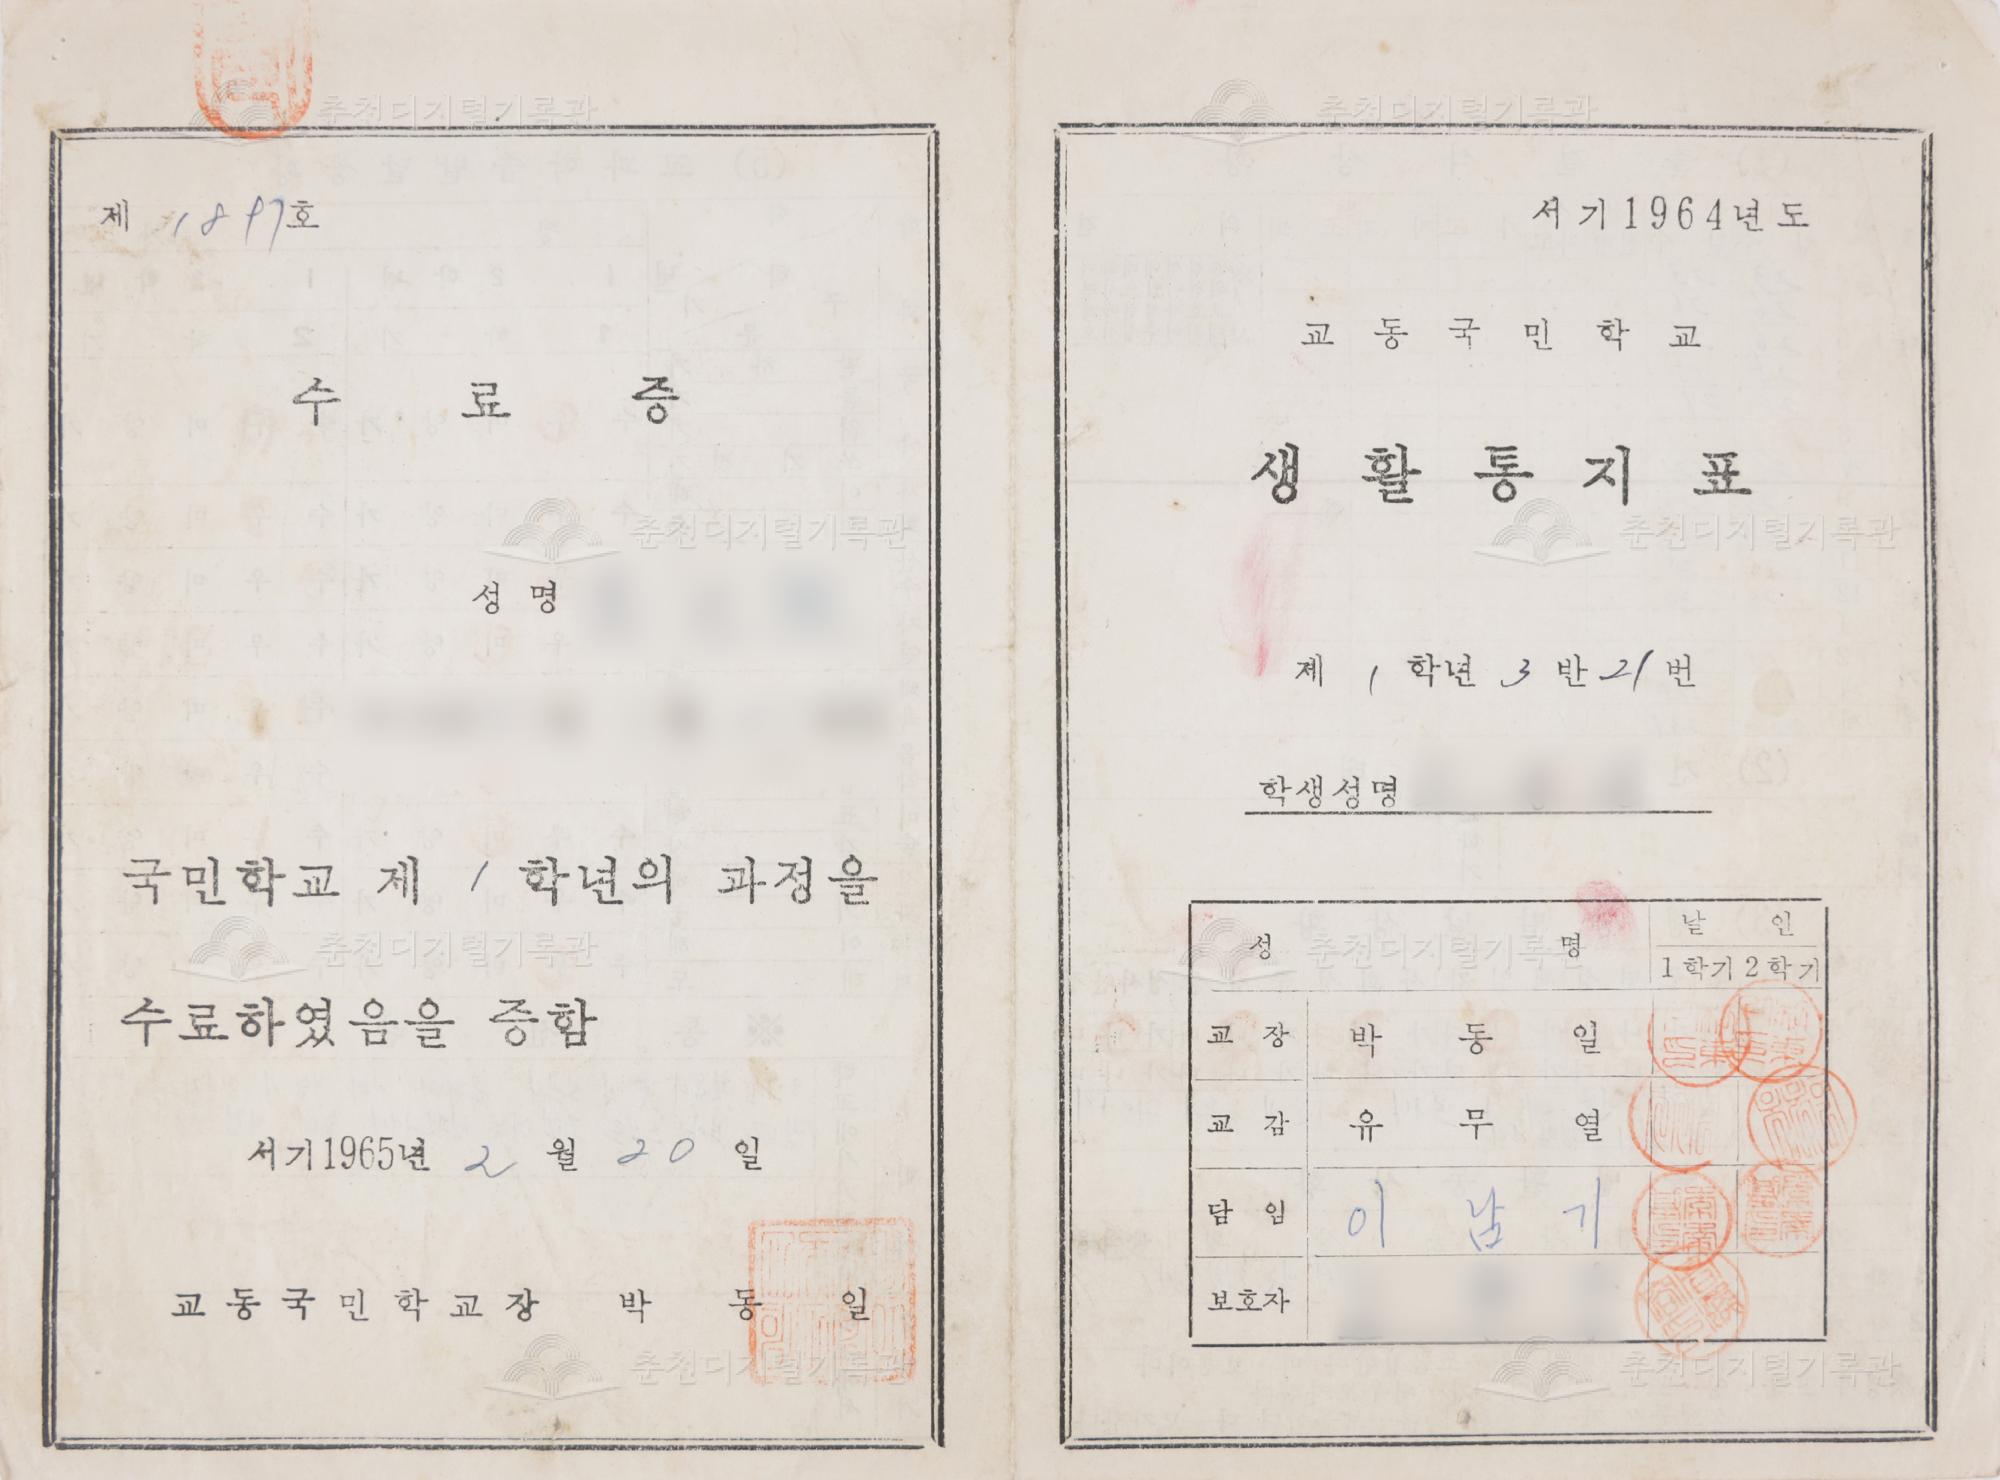 제 1897호
수료증
성명
국민학교 제 1 학년의 과정을
수료하였음을 증함
서기1965년 2 월 20 일
교동국민학교장 박동일
서기1964년도
교동국민학교
생활통지표
제 1 학년 3 반 21 번
학생성명
성명 날인
1학기 2학기
교장 박동일
교감 유무열
담임 이남기
보호자
춘천디지털기록관
춘천디지털기록관
춘천디지털기록관
춘천디지털기록관
춘천디지털기록관
춘천디지털기록관
춘천디지털기록관
춘천디지털기록관